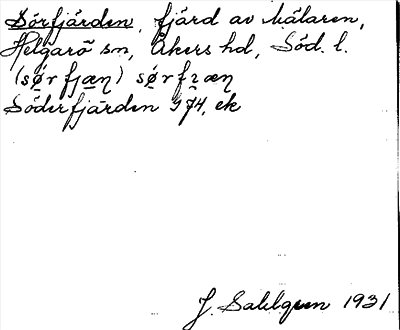 Sörfjärden, fjärd av Mälaren,
Helgarö sn, Åkers hd, Söd. l.
(sø̱rfjæ̱ɳ) sø̱rfɿæɳ
Söderfjärden 974, ek
J. Sahlgren 1931